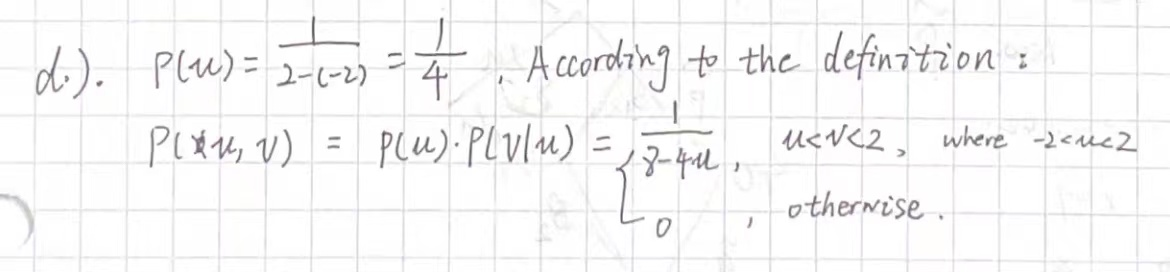 d.). P(u) = 1/(2-(-2)) = 1/4 . According to the definition :
P(u, v) = P(u)·P(v|u) = { 1/(8-4u) , u<v<2, where -2<u<2
0 , otherwise .